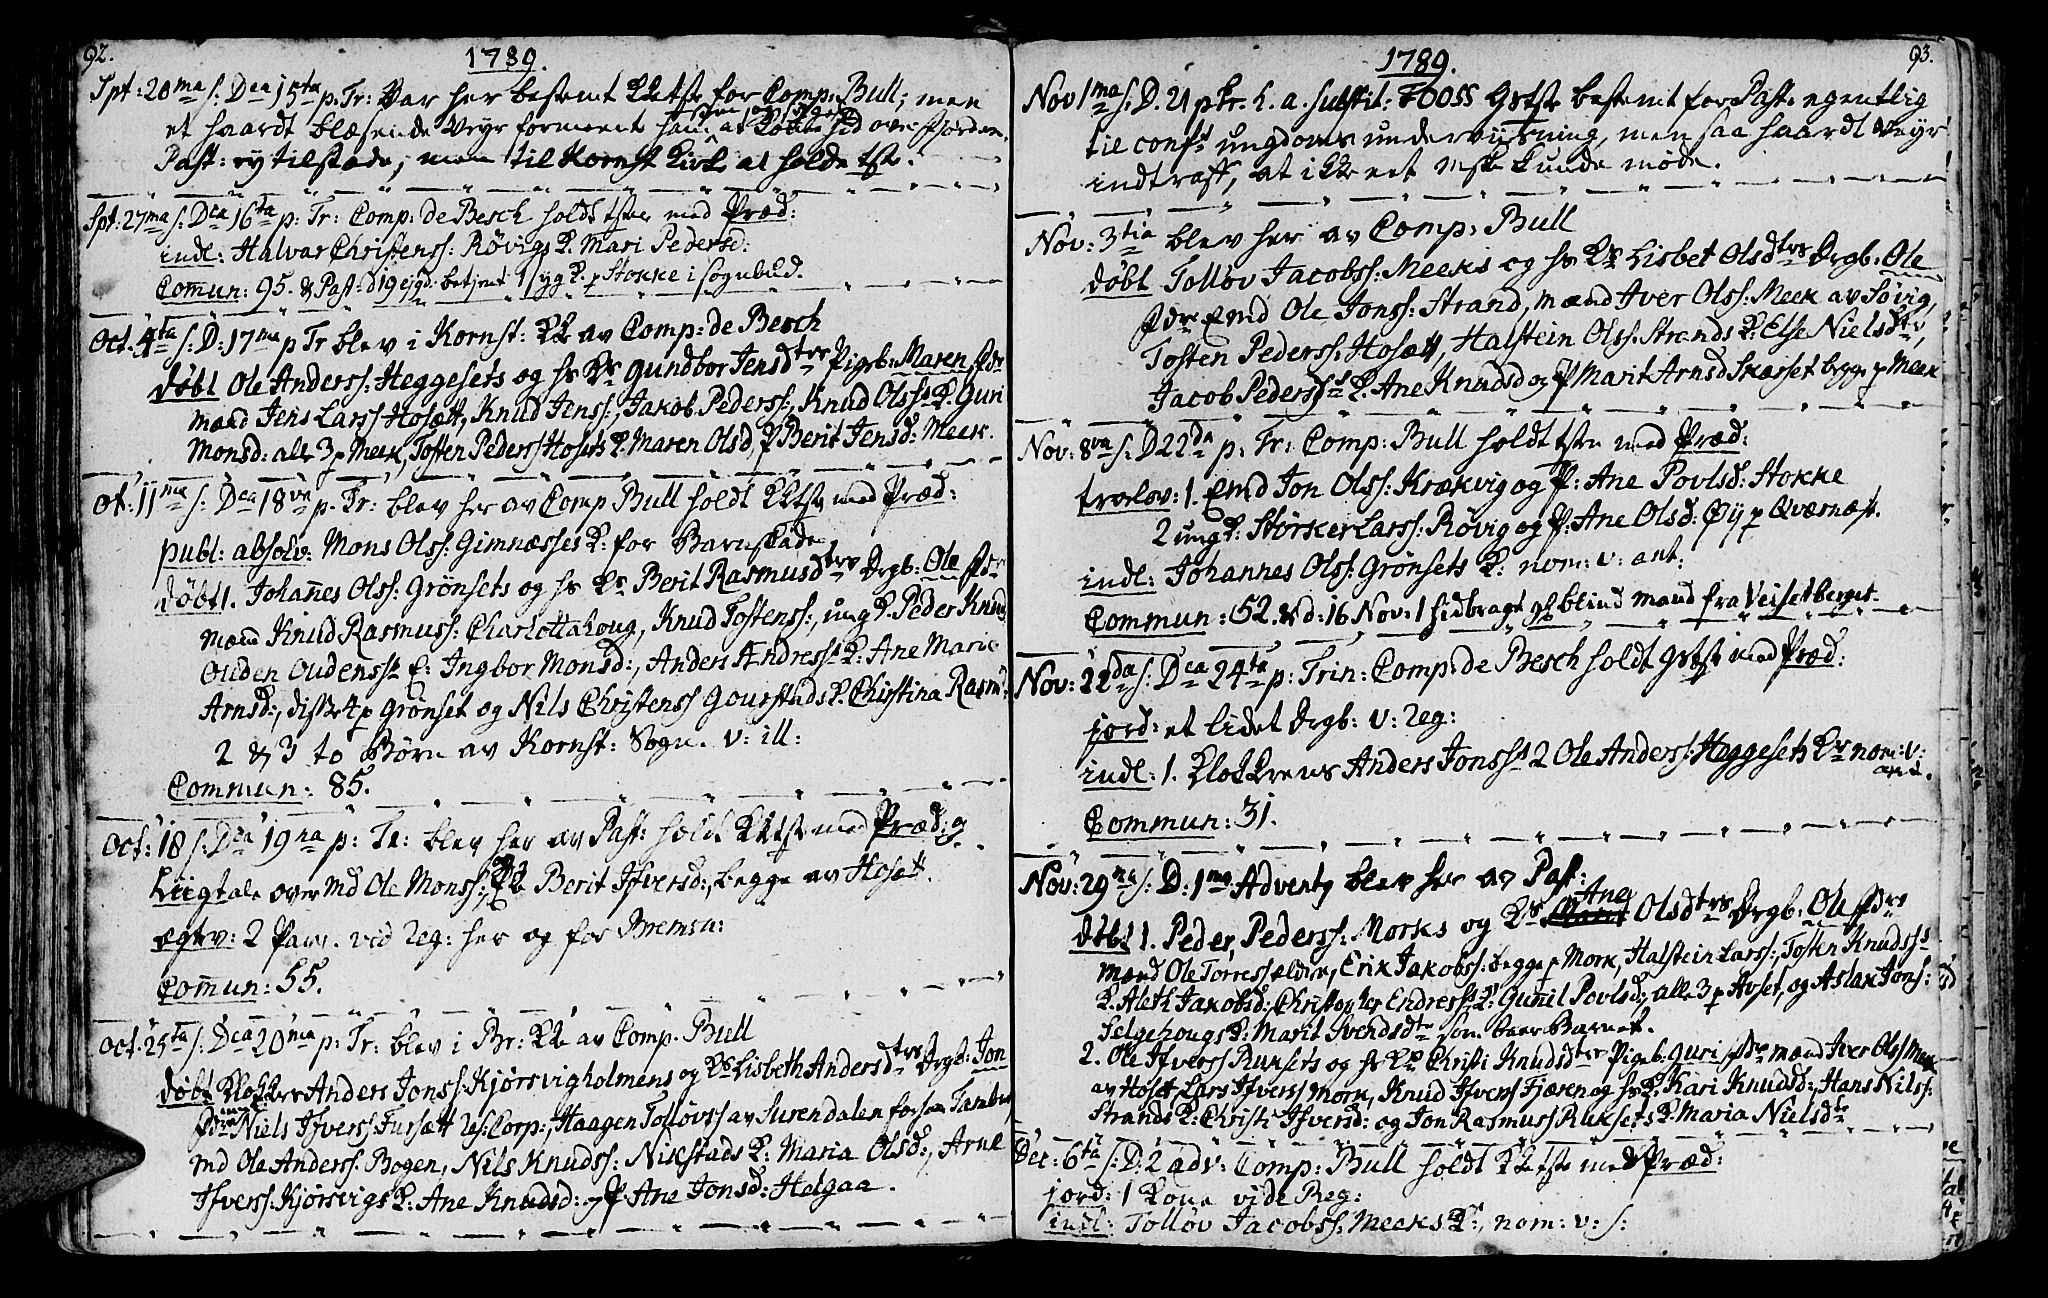 92.
1789.
Spt: 20ma s: Dca 15ta p. Tr: Var her bestemt KKetst for Comp: Bull; men
et haardt blæsende Veyr formeente ham at komme hid over fjorden.
Past: ey tilstæde, men til Kornst Kirke at holde tst.
Spt: 27ma s: Dca 16ta p: Tr: Comp: de Besch holdt tsten med Præd:
indl: Halvar Christenss: Røvigs K. Mari Pedersd:
Comun: 95. & Past: d 19 ejgd. betjent 1 syg K. p Stokke i sognebud.
Oct. 4ta s: D: 17ma p Tr blev i Kornst: KK av Comp: de Besch
døbt Ole Anderss: Heggesets og hs Ks Gundbor Jensdtrs Pigb: Maren Fdre
mænd Jens Larss Hosætt, Knud Jenss:, Jakob Pederss:, Knud Olss K. Guri
Monsd: alle 3 p Meek, Tosten Pederss Hosets K. Maren Olsd, P Berit Jensd: Meek.
Oct: 11ma s: Dca 18va p. Tr: blev her av Comp Bull holdt KKtst med Præd:
publ: absolv: Mons Olss: Gimnæsses K: for Barnsøde
døbt 1. Johannes Olss: Grønsets og hs Ks Berit Rasmusdtrs Drgb: Ole Fdre
mænd Knud Rasmuss: Charlottahoug, Knud Tostenss:, ung K. Peder Knuds,
Ouden Oudenss E: Ingbor Monsd:, Anders Andress K: Ane Marie
Arnsd:, disse 4 p Grønset og Nils Christenss Gourstads K. Christina Rasm:
2 & 3 to Børn av Kornst: Sogn. v: ill:
Commun: 85.
Oct: 18 s: Dca 19na p: Tr: blev her av Past: holdt KKtst med Præd: og
Liigtale over Md Ole Monss: Berit Ifversd:, begge av Hosett.
Egtev: 2 Par. vid Reg: her og for Bremsn:
Comun: 55.
Oct: 25ta s: Dca 20ma p: Tr: blev i Br: KK av Comp. Bull
døbt Klokker Anders Jonss: Kjørsvigholmens og Ks Lisbeth Andersdtrs Drgb: Jon
Fdre Niels Ifverss: Fursætt Res: Corp:, Haagen Tolløvss av Surendalen forson Tambur
md Ole Anderss: Bogen, Nils Knudss: Nikstads K: Maria Olsd:, Arne
Ifverss: Kjørsvigs K: Ane Knudsd: og P Ane Jonsd: Helgaa.
93.
1789.
Nov 1ma s: D. 21 p Tr. h. a. substit: Fooss Gstst bestemt for Past: egentlig
til conft ungdoms underviisning, men saa haardt Veyr
indtraff, at ikke et mske kunde møde.
Nov: 3tia blev her av Comp: Bull
døbt Tolløv Jacobss: Meeks og hs Ks Lisbet Olsdtrs Drgb: Ole
Fdre Emd Ole Jonss: Strand, mænd Iver Olss: Meek av Søvig,
Tosten Pederss: Hosætt, Halstein Olss: Strands K: Else Nielsdtr,
Jacob Pederss K. Ane Knudsd og P Marit Arnsd Skæsset begge p Meek
Nov: 8va s: D 22da p: Tr: Comp: Bull holdt tsten med Præd:
trolov: 1. Emd Jon Olss: Krækvig og P: Ane Povlsd: Stokke
2 ung K: Størker Larss: Røvig og P: Ane Olsd: Øy p Qværnæst.
indl: Johannes Olss: Grønsets K: nom: v: ant:
Commun: 52. & d: 16 Nov: 1 hidbragt gl blind mand fra Veisetberget
Nov: 22da s: Dca 24ta p: Trin: Comp: de Besch holdt Gstst med Præd:
jord: et lidet Drgb: v: Reg:
indl: 1. Klokkerens Anders Jonss 2 Ole Anders: Heggesets Ks nom: v:
ant.
Commun: 31.
Nov: 29na s: D: 1ma Adventg blev her av Past:
døbt 1. Peder Pederss: Morks og Ks Ane Olsdtrs Drgb: Ole Fdre
mænd Ole Torress ældre, Erik Jakobss: begge p Mork, Halstein Larss:, Tosten Knudss
K. Aleth Jakobsd:, Christopher Endress K: Gunil Povlsd:, alle 3 p Avset, og Aslak Jons:
Helgehougs K: Marit Svendsdtr som baar Barnet.
2. Ole Ifverss Ruksets og hs Ks Christi Knudsdtrs Pigeb: Guri Fdre mænd Iver Olss Meek
av Hoset, Lars Ifverss Mork, Knud Ifverss Fjæren og hs K: Kari Knudsd:, Hans Nilss:
Strands K: Christi Ifversd: og Jon Rasmuss Ruksets K. Maria Nielsdtr
Dec: 6ta s: D: 2 adv: Comp: Bull holdt KKtst med Præd:
jord: 1 Kone vide Reg:
indl: Tolløv Jacobss: Meeks K:, nom: v: s: